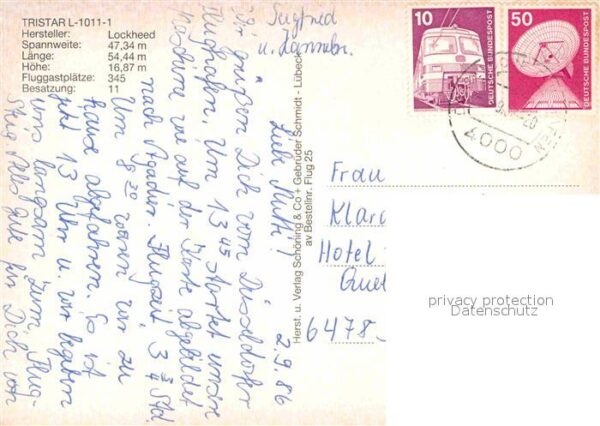 TRISTAR L-1011-1
Hersteller: Lockheed
Spannweite: 47,34 m
Länge: 54,44 m
Höhe: 16,87 m
Fluggastplätze: 345
Besatzung: 11
Siegfried
u. Hannelor.
2.9.86
Liebe Mutti!
Wir grüßen Dich vom Düsseldorfer
Flughafen. Um 13 45 startet unsere
Maschine wie auf der Karte abgebildet
nach Agadir. Flugzeit 3 3/4 Std.
Um 8 20 waren wir zu
Hause abgefahren. Es ist
jetzt 13 Uhr u. wir begeben
uns langsam zum Flug-
steig. Alles gute für Dich von
Herst. u. Verlag Schöning & Co + Gebrüder Schmidt - Lübeck
av Bestellnr. Flug 25
10
DEUTSCHE BUNDESPOST
50
DEUTSCHE BUNDESPOST
4000
Frau
Klara
Hotel
Quel
6478
privacy protection
Datenschutz